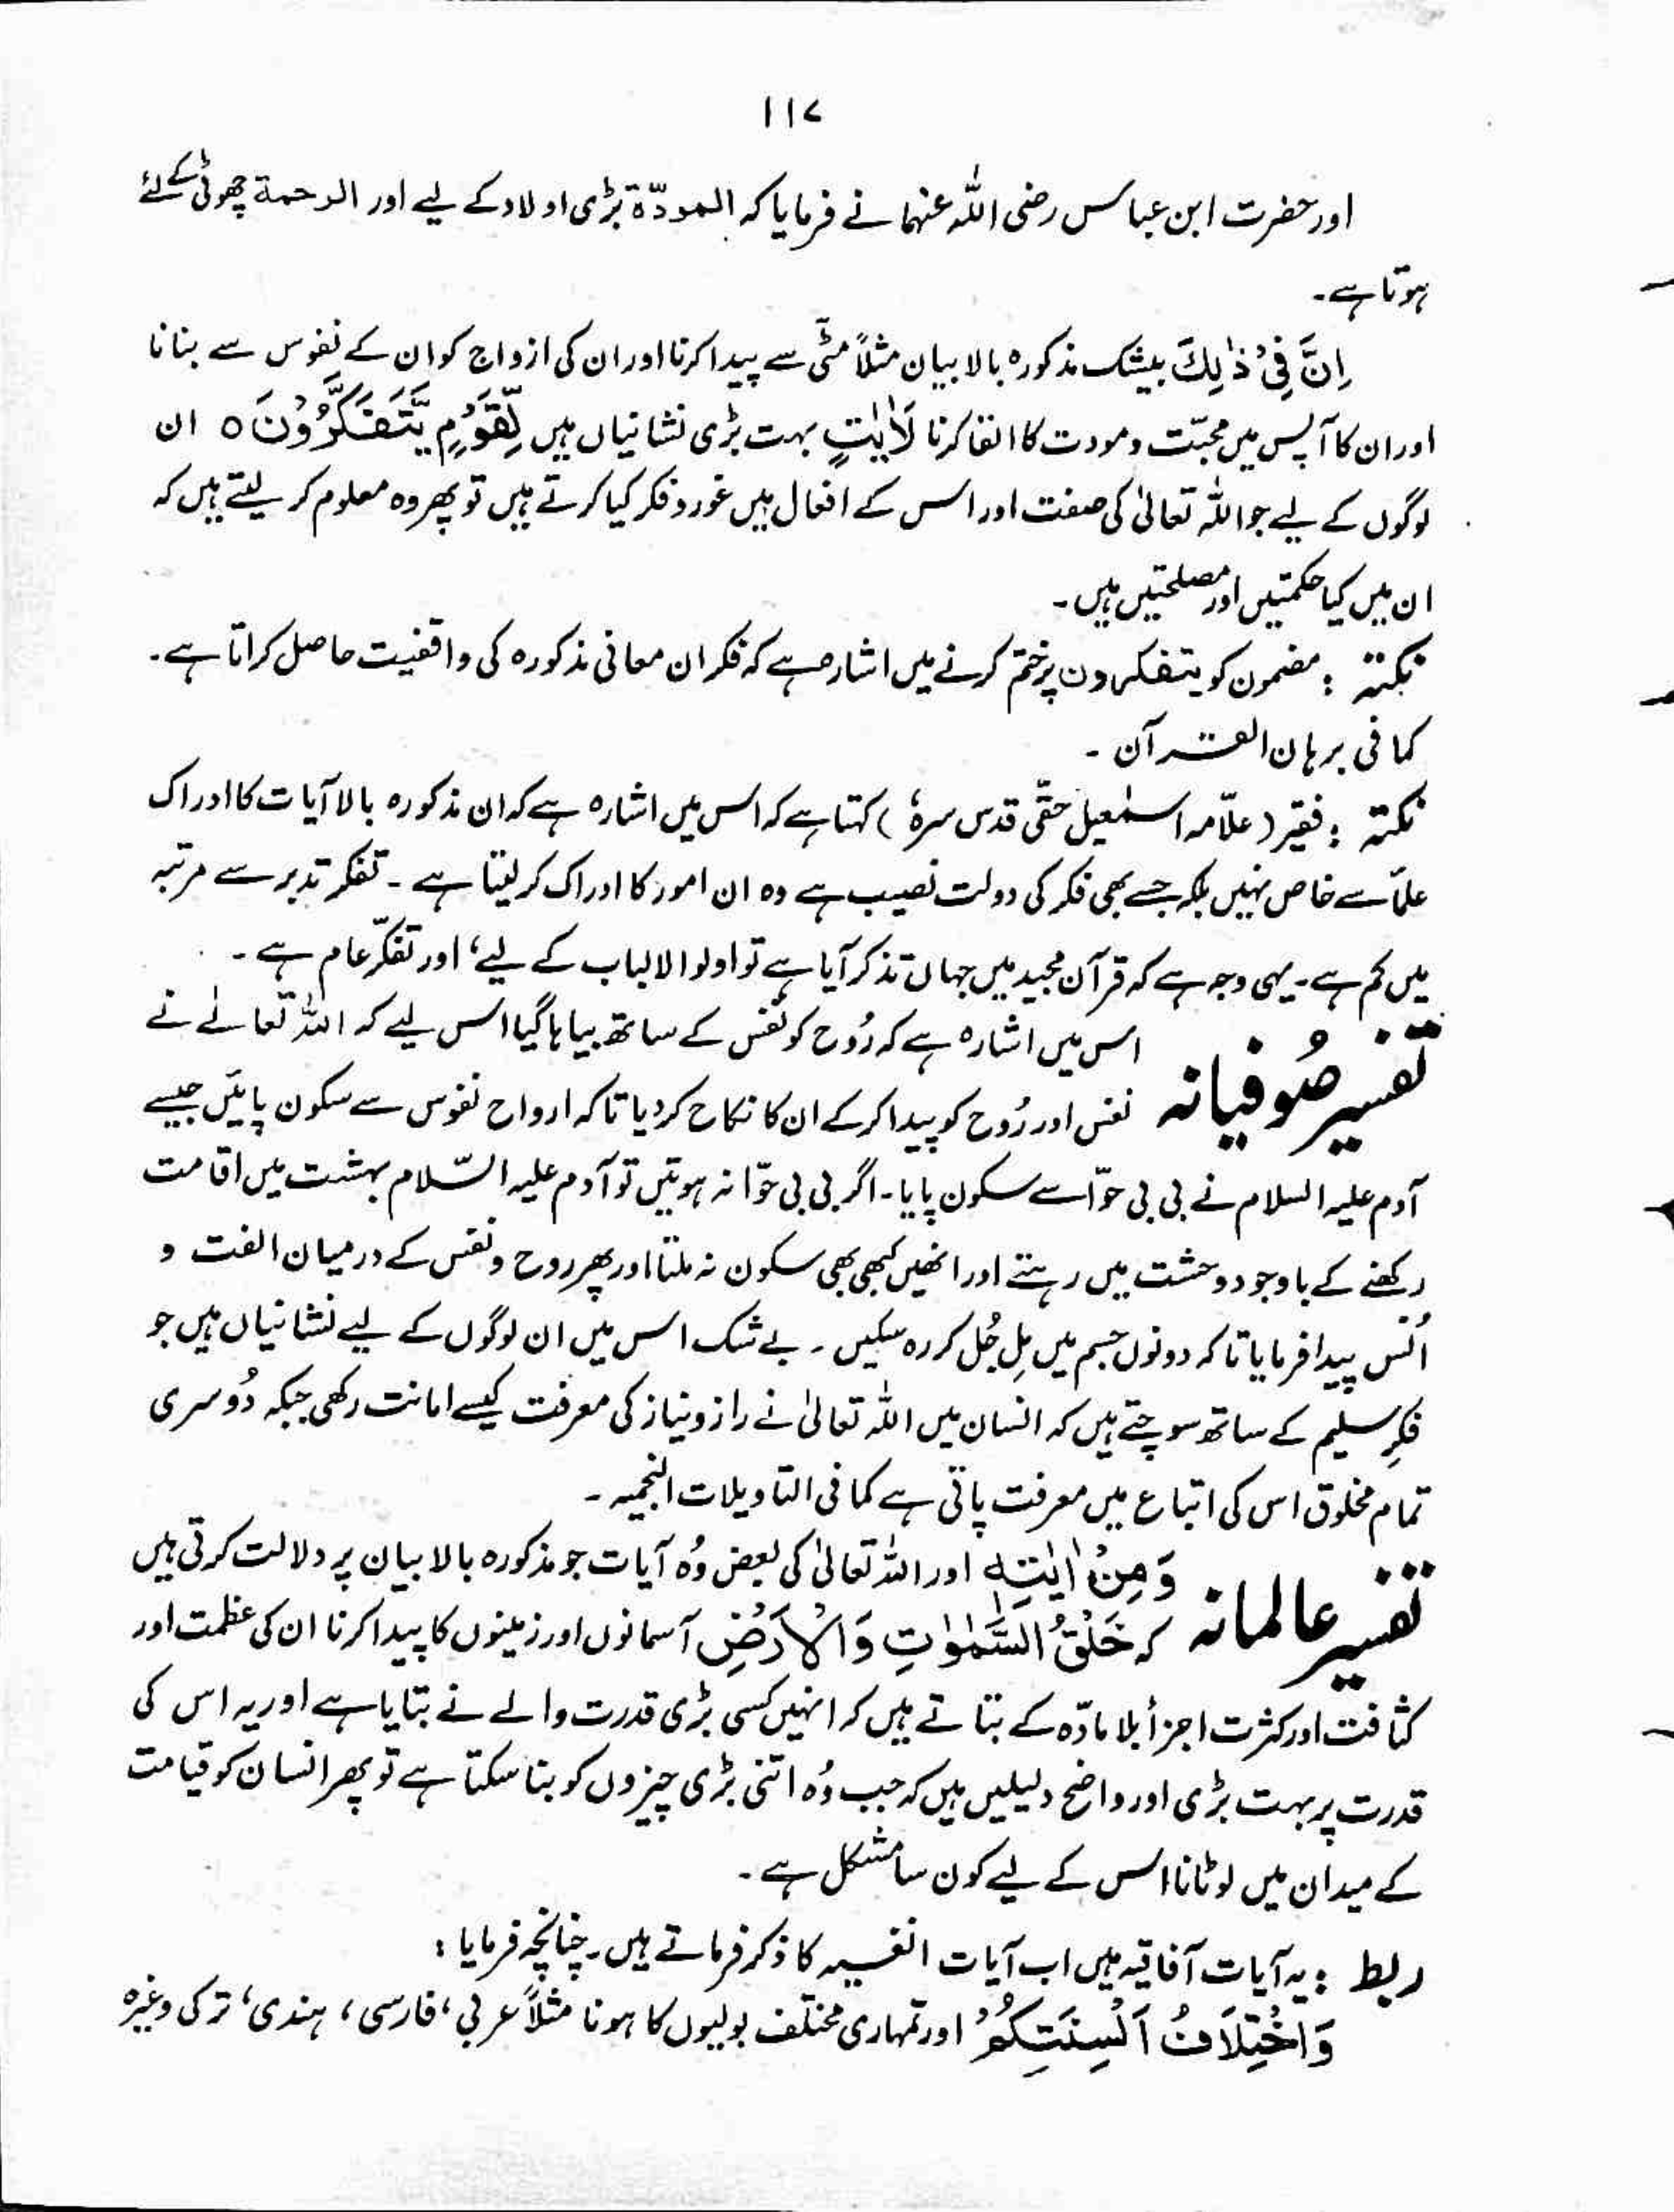 ۱۱۷
اور حضرت ابن عباس رضی اللہ عنہما نے فرمایا کہ المودّة بڑی اولاد کے لیے اور الرحمة چھوٹی کے لئے
ہوتا ہے۔
اِنَّ فِیْ ذٰلِكَ بیشک مذکورہ بالا بیان مثلاً مٹّی سے پیدا کرنا اور ان کی ازواج کو ان کے نفوس سے بنانا
اور ان کا آپس میں محبّت و مودت کا القا کرنا لَاٰیٰتٍ بہت بڑی نشانیاں ہیں لِّقَوْمٍ یَّتَفَكَّرُوْنَ ○ ان
لوگوں کے لیے جو اللہ تعالیٰ کی صفت اور اس کے افعال میں غور و فکر کیا کرتے ہیں تو پھر وہ معلوم کر لیتے ہیں کہ
ان میں کیا حکمتیں اور مصلحتیں ہیں۔
نکتہ : مضمون کو یتفکرون پر ختم کرنے میں اشارہ ہے کہ فکر ان معانی مذکورہ کی واقفیت حاصل کراتا ہے۔
کما فی برہان القرآن۔
نکتہ : فقیر (علّامہ اسمٰعیل حقّی قدس سرہٗ) کہتا ہے کہ اس میں اشارہ ہے کہ ان مذکورہ بالا آیات کا ادراک
علمأ سے خاص نہیں بلکہ جسے بھی فکر کی دولت نصیب ہے وہ ان امور کا ادراک کر لیتا ہے۔ تفکر تدبر سے مرتبہ
میں کم ہے۔ یہی وجہ ہے کہ قرآن مجید میں جہاں تذکر آیا ہے تو اولوا الالباب کے لیے، اور تفکّر عام ہے۔
تفسیر صُوفیانہ اس میں اشارہ ہے کہ رُوح کو نفس کے ساتھ بیاہا گیا اس لیے کہ اللہ تعالےٰ نے
نفس اور رُوح کو پیدا کر کے ان کا نکاح کر دیا تاکہ ارواح نفوس سے سکون پائیں جیسے
آدم علیہ السلام نے بی بی حوّا سے سکون پایا۔ اگر بی بی حوّا نہ ہوتیں تو آدم علیہ السّلام بہشت میں اقامت
رکھنے کے باوجود وحشت میں رہتے اور انھیں کبھی بھی سکون نہ ملتا اور پھر روح و نفس کے درمیان الفت و
اُنس پیدا فرمایا تاکہ دونوں جسم میں مِل جُل کر رہ سکیں۔ بے شک اس میں ان لوگوں کے لیے نشانیاں ہیں جو
فکرِ سلیم کے ساتھ سوچتے ہیں کہ انسان میں اللہ تعالیٰ نے راز و نیاز کی معرفت کیسے امانت رکھی جبکہ دُوسری
تمام مخلوق اس کی اتباع میں معرفت پاتی ہے کما فی التاویلات النجمیہ۔
تفسیر عالمانہ وَ مِنْ اٰیٰتِہٖ اور اللہ تعالیٰ کی بعض وُہ آیات جو مذکورہ بالا بیان پر دلالت کرتی ہیں
کہ خَلْقُ السَّمٰوٰتِ وَ الْاَرْضِ آسمانوں اور زمینوں کا پیدا کرنا ان کی عظمت اور
کثافت اور کثرت اجزأ بلا مادّہ کے بتاتے ہیں کہ انہیں کسی بڑی قدرت والے نے بتایا ہے اور یہ اس کی
قدرت پر بہت بڑی اور واضح دلیلیں ہیں کہ جب وُہ اتنی بڑی چیزوں کو بنا سکتا ہے تو پھر انسان کو قیامت
کے میدان میں لوٹانا اس کے لیے کون سا مشکل ہے۔
ربط : یہ آیات آفاقیہ ہیں اب آیات انفسیہ کا ذکر فرماتے ہیں۔ چنانچہ فرمایا :
وَ اخْتِلَافُ اَلْسِنَتِكُمْ اور تمہاری مختلف بولیوں کا ہونا مثلاً عربی، فارسی، ہندی، ترکی وغیرہ